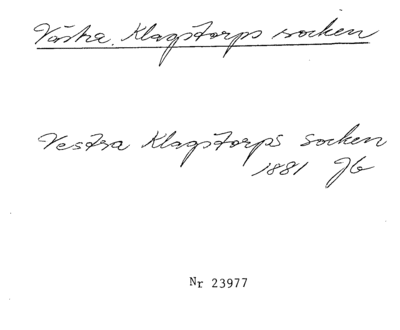 Västra Klagstorps socken
Vestra Klagstorps socken
1881 Jb
Nr 23977